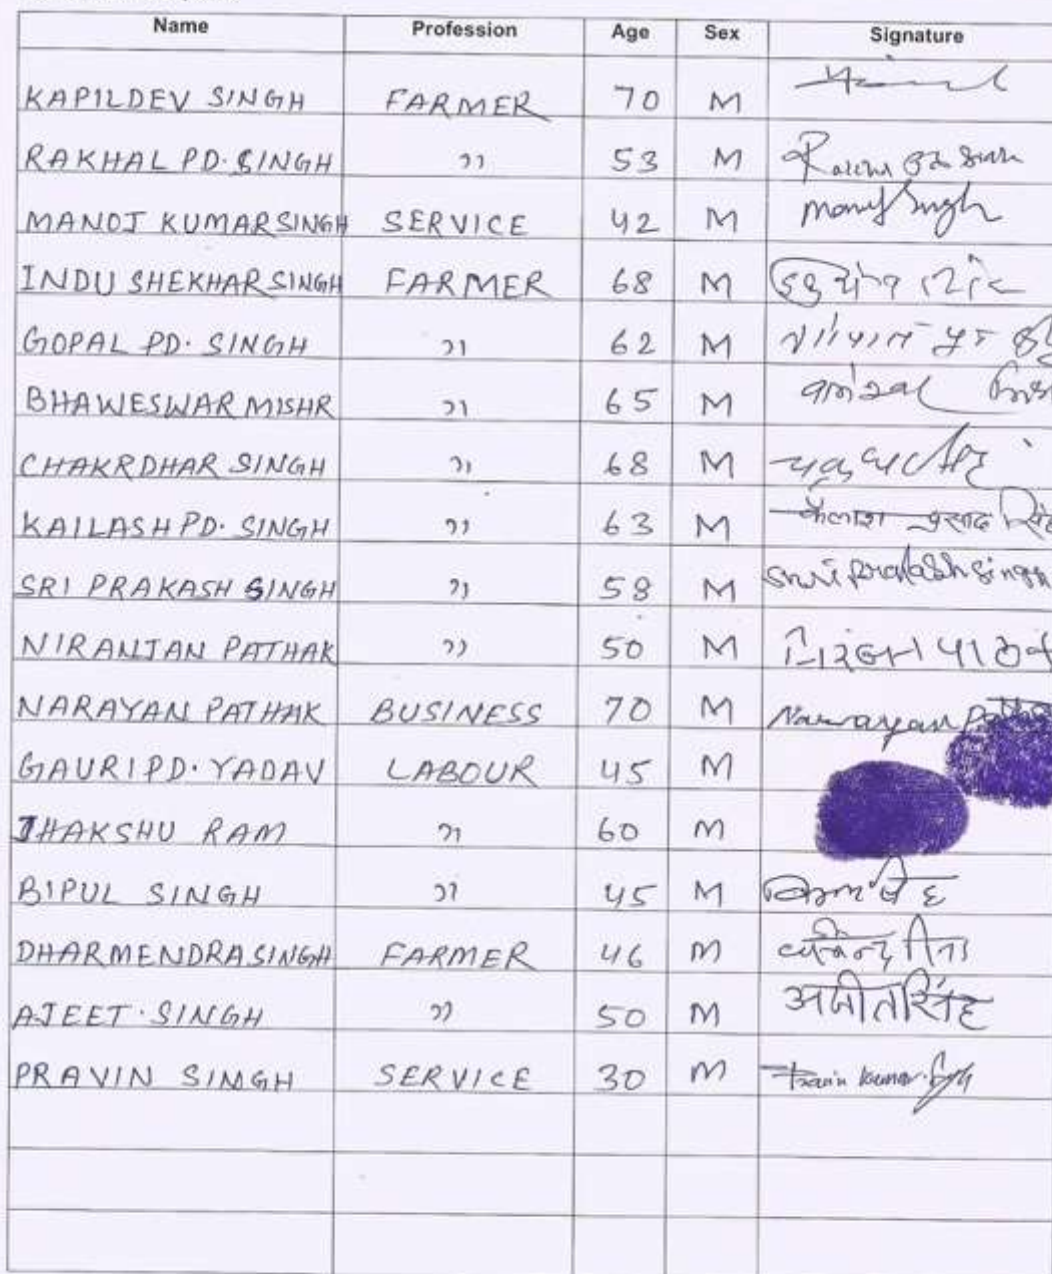 Name Profession Age Sex Signature
KAPILDEV SINGH FARMER 70 M
RAKHAL PD. SINGH " 53 M
MANOJ KUMAR SINGH SERVICE 42 M Manoj Singh
INDU SHEKHAR SINGH FARMER 68 M
GOPAL PD. SINGH " 62 M
BHAWESWAR MISHR " 65 M
CHAKRDHAR SINGH " 68 M
KAILASH PD. SINGH " 63 M कैलाश प्रसाद सिंह
SRI PRAKASH SINGH " 58 M Shri prakash singh
NIRANJAN PATHAK " 50 M निरंजन पाठक
NARAYAN PATHAK BUSINESS 70 M Narayan
GAURI PD. YADAV LABOUR 45 M
JHAKSHU RAM " 60 M
BIPUL SINGH " 45 M
DHARMENDRA SINGH FARMER 46 M
AJEET SINGH " 50 M अजीत सिंह
PRAVIN SINGH SERVICE 30 M Pravin Kumar Singh